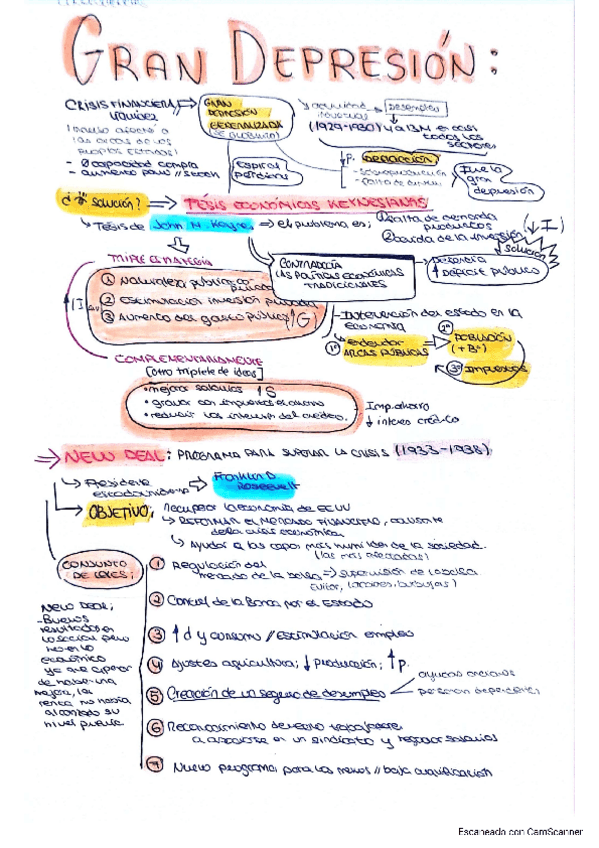 GRAN DEPRESIÓN:
CRISIS FINANCIERA
GRAN
DEPRESIÓN
GENERALIZADA
DESEMPLEO
(1929-1930)
- Ø capacidad compra
Espiral
perdición
p. DEFLACCIÓN
- Sobreproducción
Fue la
gran
depresión
¿ solución?
TESIS ECONÓMICAS KEYNESIANAS:
Tesis de John M. Keyne
el problema es;
① Falta de demanda
productos
② caida de la inversión
(↓ I)
↓ solución
TRIPLE ESTRATEGIA
CONTRADECÍA
LAS POLÍTICAS ECONÓMICAS
TRADICIONALES
↑ Déficit público
②
Estimulación inversión privada
③ Aumento del gasto público (↑G)
- Intervención del estado en la
economía
①º endeudar
ARCAS PÚBLICAS
②º POBLACIÓN
(+ Bº)
③º IMPUESTOS
COMPLEMENTARIAMENTE
[otro triplete de ideas]
• mejorar salarios ↑S
• gravar con impuestos el ahorro
• reducir los intereses del crédito.
Imp. ahorro
↓ interés crédito
NEW DEAL: PROGRAMA PARA SUPERAR LA CRISIS (1933-1938)
Presidente
estadounidense
Franklin D.
Roosevelt
OBJETIVO; recuperar la economía de EEUU
REFORMAR EL MERCADO FINANCIERO, causante
de la crisis económica
Ayudar a las capas más humildes de la sociedad.
(las más afectadas)
CONJUNTO
DE LEYES;
① Regulación del
mercado de la bolsa ⇒ supervisión de la bolsa
② Control de la Banca por el Estado
③ ↑ d y consumo // estimulación empleo
④ Ajustes agricultura; ↓ producción; ↑ p.
⑤ Creación de un seguro de desempleo
ayudas ancianos
personas dependientes
⑥ Reconocimiento derecho trabajadores
a asociarse en un sindicato y negociar salarios
⑦ Nuevo programa; para los menos // baja cualificación
NEW DEAL;
- Buenos
resultados en
lo social pero
no en lo
económico
ya que a pesar
de haber una
mejora, la
renta no había
alcanzado su
nivel previo
Escaneado con CamScanner